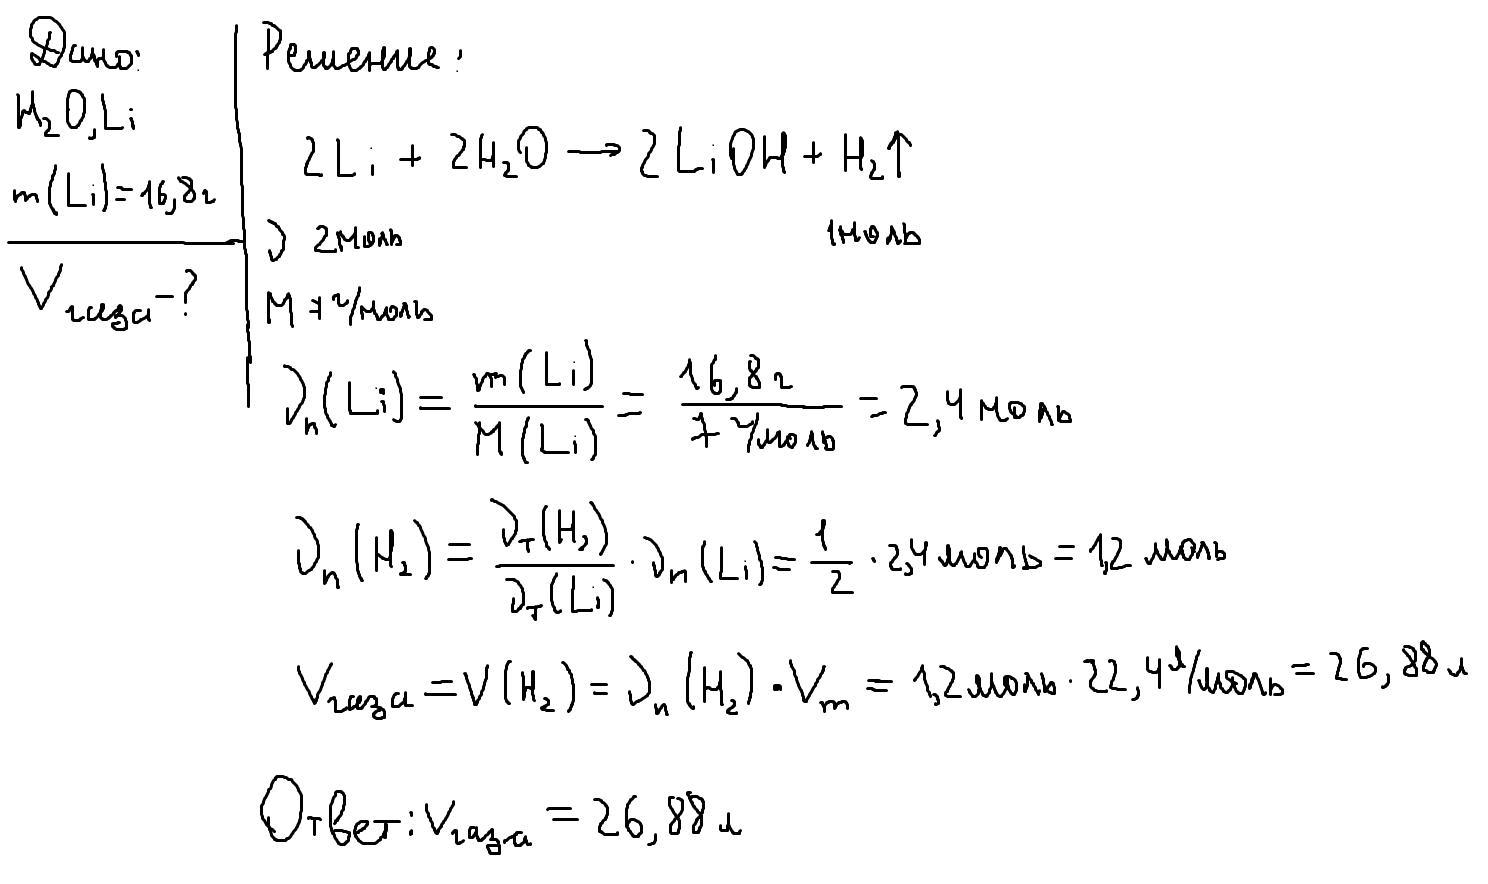 Дано:
H₂O, Li
m(Li)=16,8г
Vгаза-?
Решение:
2Li + 2H₂O → 2LiOH + H₂↑
ν 2моль 1моль
M 7 г/моль
νп(Li) = m(Li)/M(Li) = 16,8г/7 г/моль = 2,4 моль
νп(H₂) = νт(H₂)/νт(Li) · νп(Li) = 1/2 · 2,4 моль = 1,2 моль
Vгаза = V(H₂) = νп(H₂) · Vm = 1,2 моль · 22,4 л/моль = 26,88 л
Ответ: Vгаза = 26,88 л